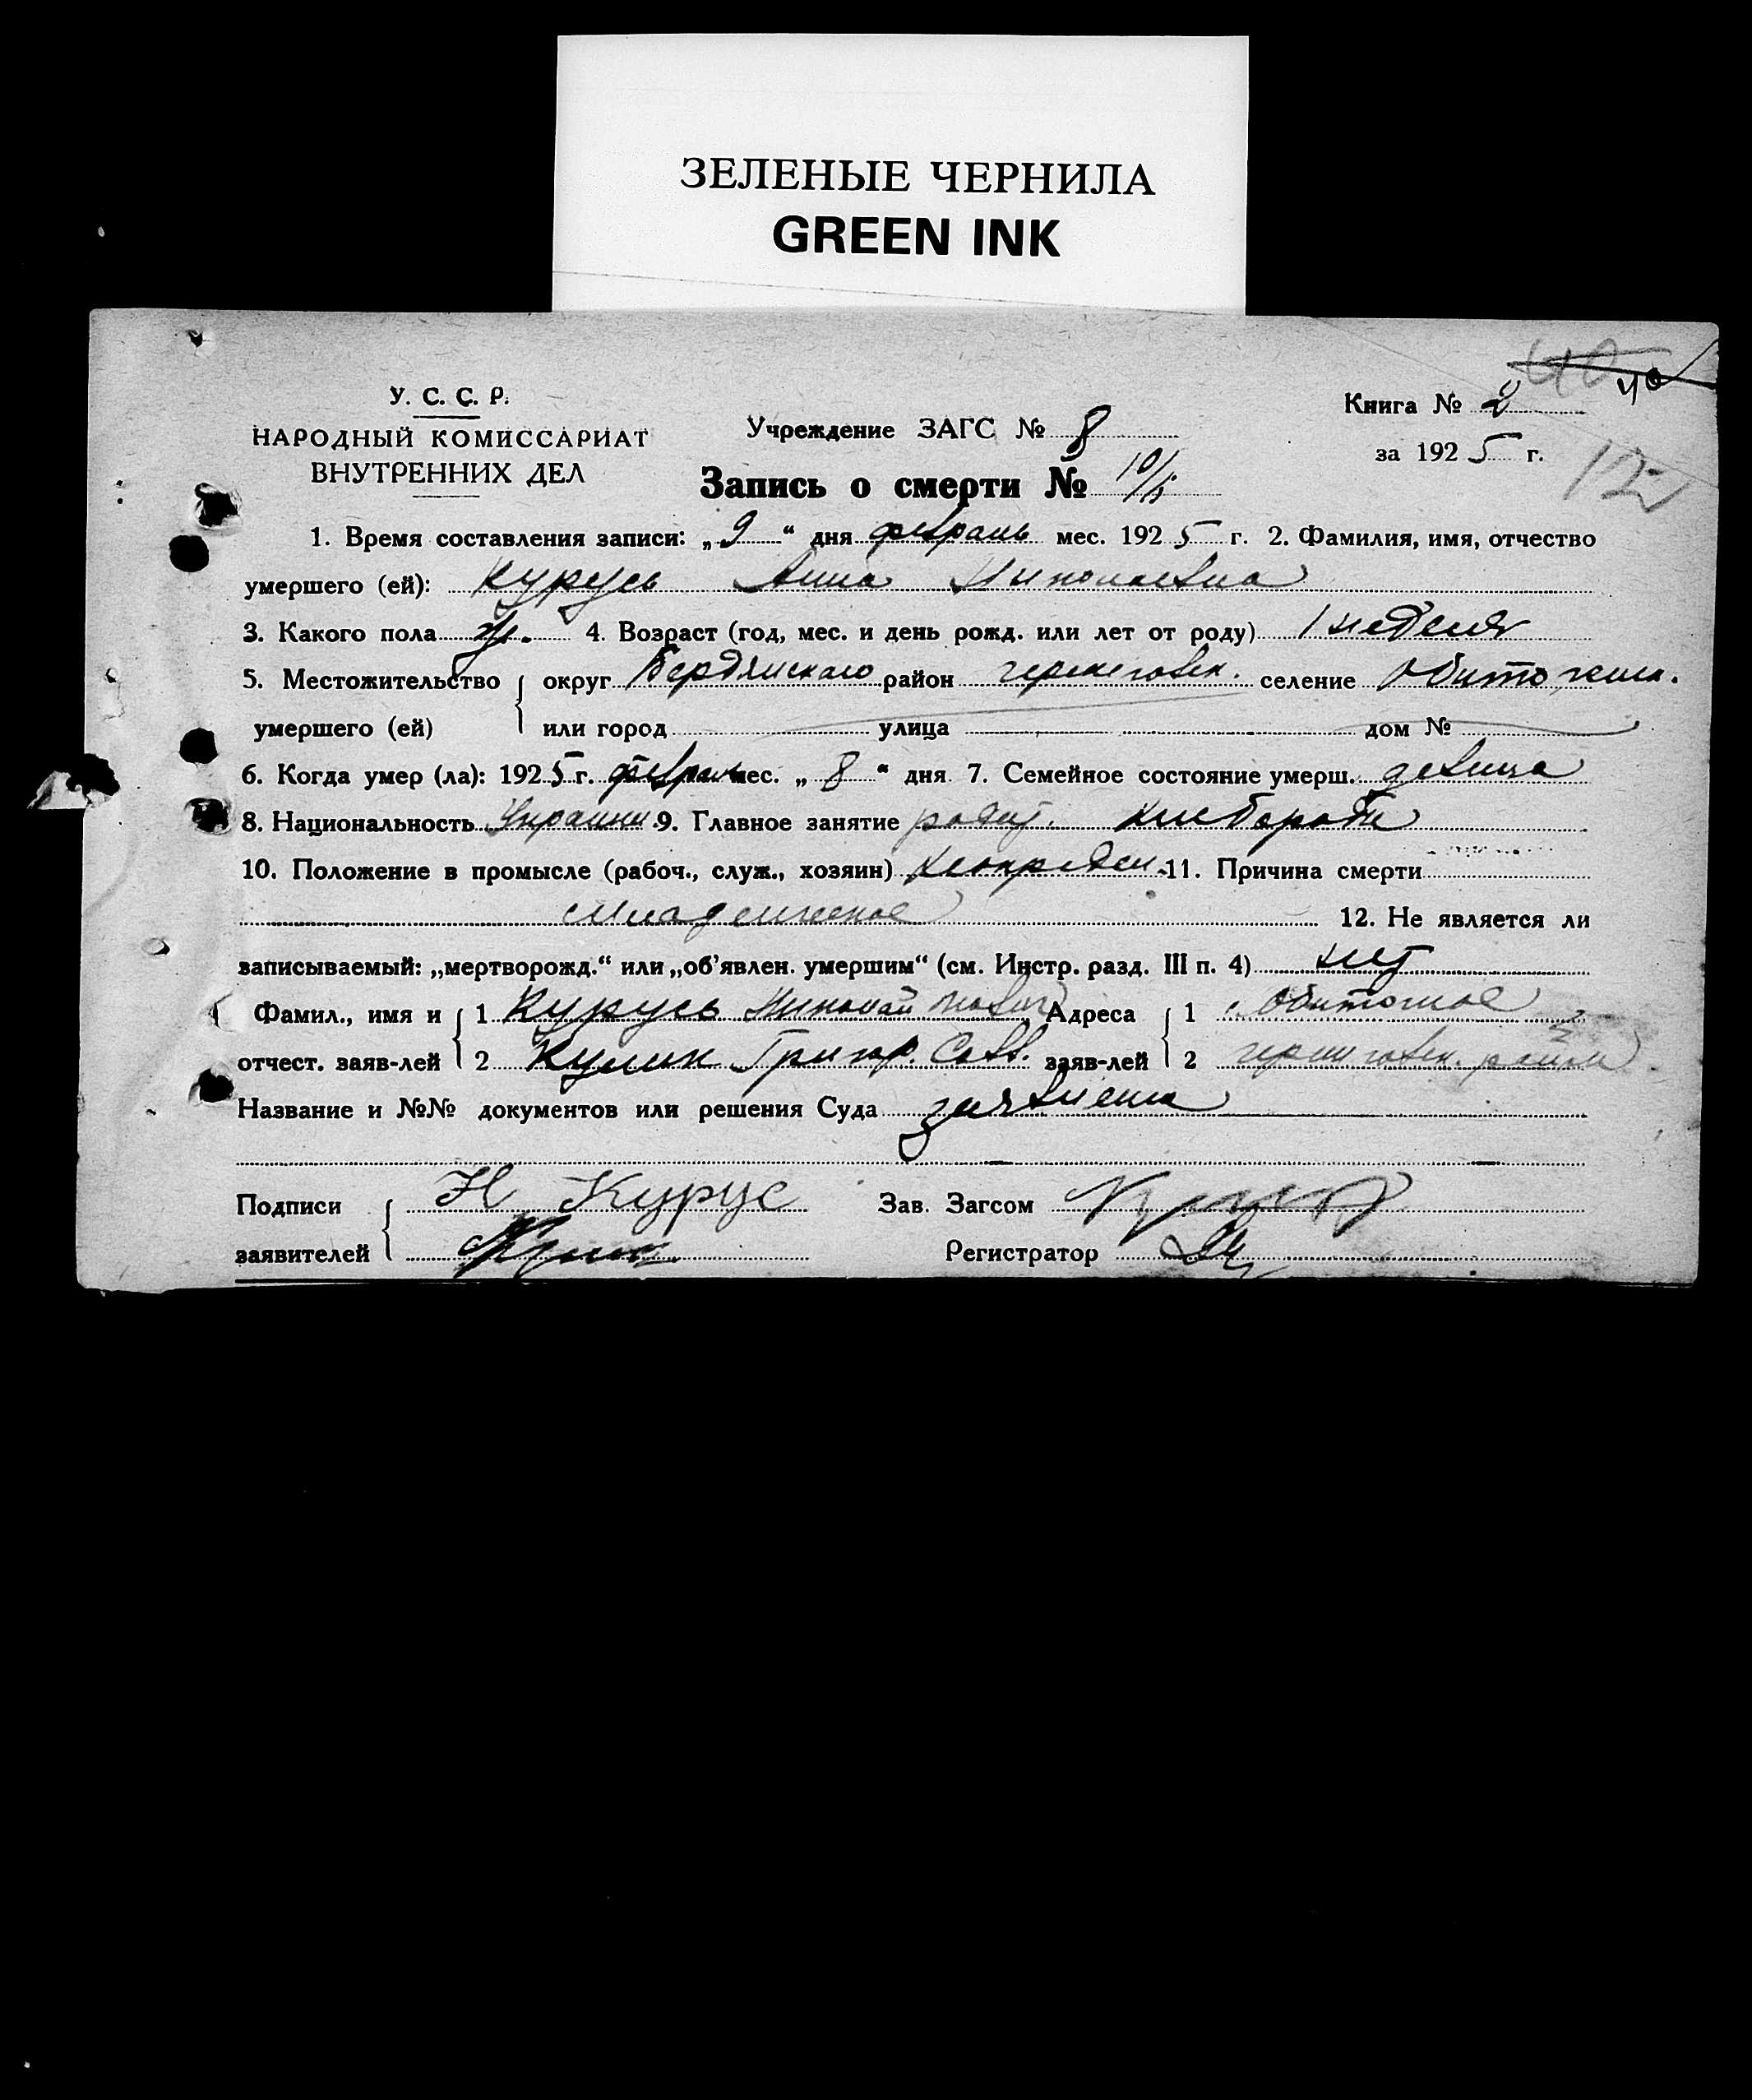 ЗЕЛЕНЫЕ ЧЕРНИЛА
GREEN INK
40 40
У. С. С. Р.
НАРОДНЫЙ КОМИССАРИАТ
ВНУТРЕННИХ ДЕЛ
Учреждение ЗАГС № 8
Книга № 2
за 1925 г.
12
Запись о смерти № 10/5
1. Время составления записи: „9“ дня февраль мес. 1925 г. 2. Фамилия, имя, отчество
умершего (ей): Курусь Анна Николаевна
3. Какого пола ж. 4. Возраст (год, мес. и день рожд. или лет от роду) 1 неделя
5. Местожительство округ Бердянского район черниговск. селение Обиточен.
умершего (ей) или город улица дом №
6. Когда умер (ла): 1925 г. февраль мес. „8“ дня 7. Семейное состояние умерш. девица
8. Национальность Украин. 9. Главное занятие родит. хлебороби
10. Положение в промысле (рабоч., служ., хозяин) неопределен. 11. Причина смерти
младенческое 12. Не является ли
записываемый: „мертворожд.“ или „об'явлен. умершим“ (см. Инстр. разд. III п. 4) нет
Фамил., имя и 1 Курусь Николай Адреса 1 Обиточное
отчест. заяв-лей 2 Кулик Григор. Савв. заяв-лей 2 черниговск. района
Название и №№ документов или решения Суда заявления
Подписи Н Курус Зав. Загсом
заявителей Кулик Регистратор